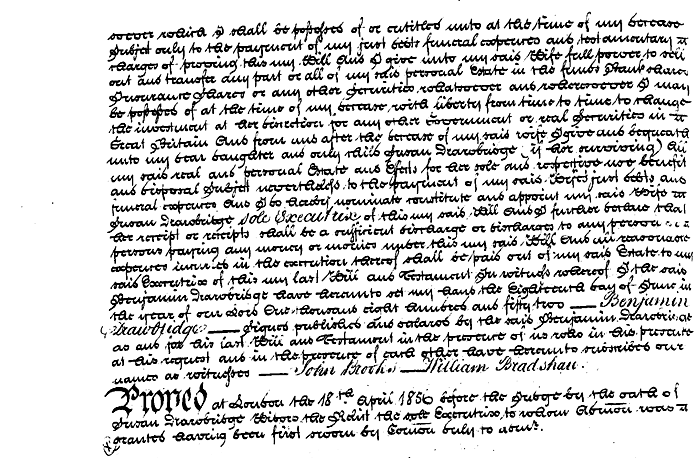 soever which I shall be possessed of or entitled unto at the time of my decease
Subject only to the payment of my just debts funeral expences and testamentary
charges of proving this my Will And I give unto my said Wife full power to sell
out and transfer any part or all of my said personal Estate in the funds Bank shares
Insurance Shares or any other Securities whatsoever and wheresoever I may
be possessed of at the time of my decease with liberty from time to time to change
the investment at her discretion for any other Government or real Securities in
Great Britain And from and after the decease of my said wife I give and bequeath
unto my dear daughter and only child Susan Drawbridge (if her surviving) all
my said real and personal Estate and Effects for her sole and respective use benefit
and disposal Subject nevertheless to the payment of my said Wifes just debts and
funeral expences And I do hereby nominate constitute and appoint my said Wife
Susan Drawbridge sole Executrix of this my said Will And I further declare that
her receipt or receipts shall be a sufficient discharge or discharges to any person or
persons paying any money or monies under this my said Will And all reasonable
expences incurred in the execution thereof shall be paid out of my said Estate to my
said Executrix of this my last Will and Testament In witness whereof I the said
Benjamin Drawbridge have hereunto set my hand the Eighteenth day of June in
the year of our Lord One thousand eight hundred and fifty two — Benjamin
Drawbridge — Signed published and declared by the said Benjamin Drawbridge
as and for his last Will and Testament in the presence of us who in his presence
at his request and in the presence of each other have hereunto subscribed our
names as witnesses — John Brooks — William Bradshaw.
Proved at London the 18th April 1856 before the Judge by the oath of
Susan Drawbridge Widow the Relict the sole Executrix to whom Admon was
granted having been first sworn by Comon duly to admr.